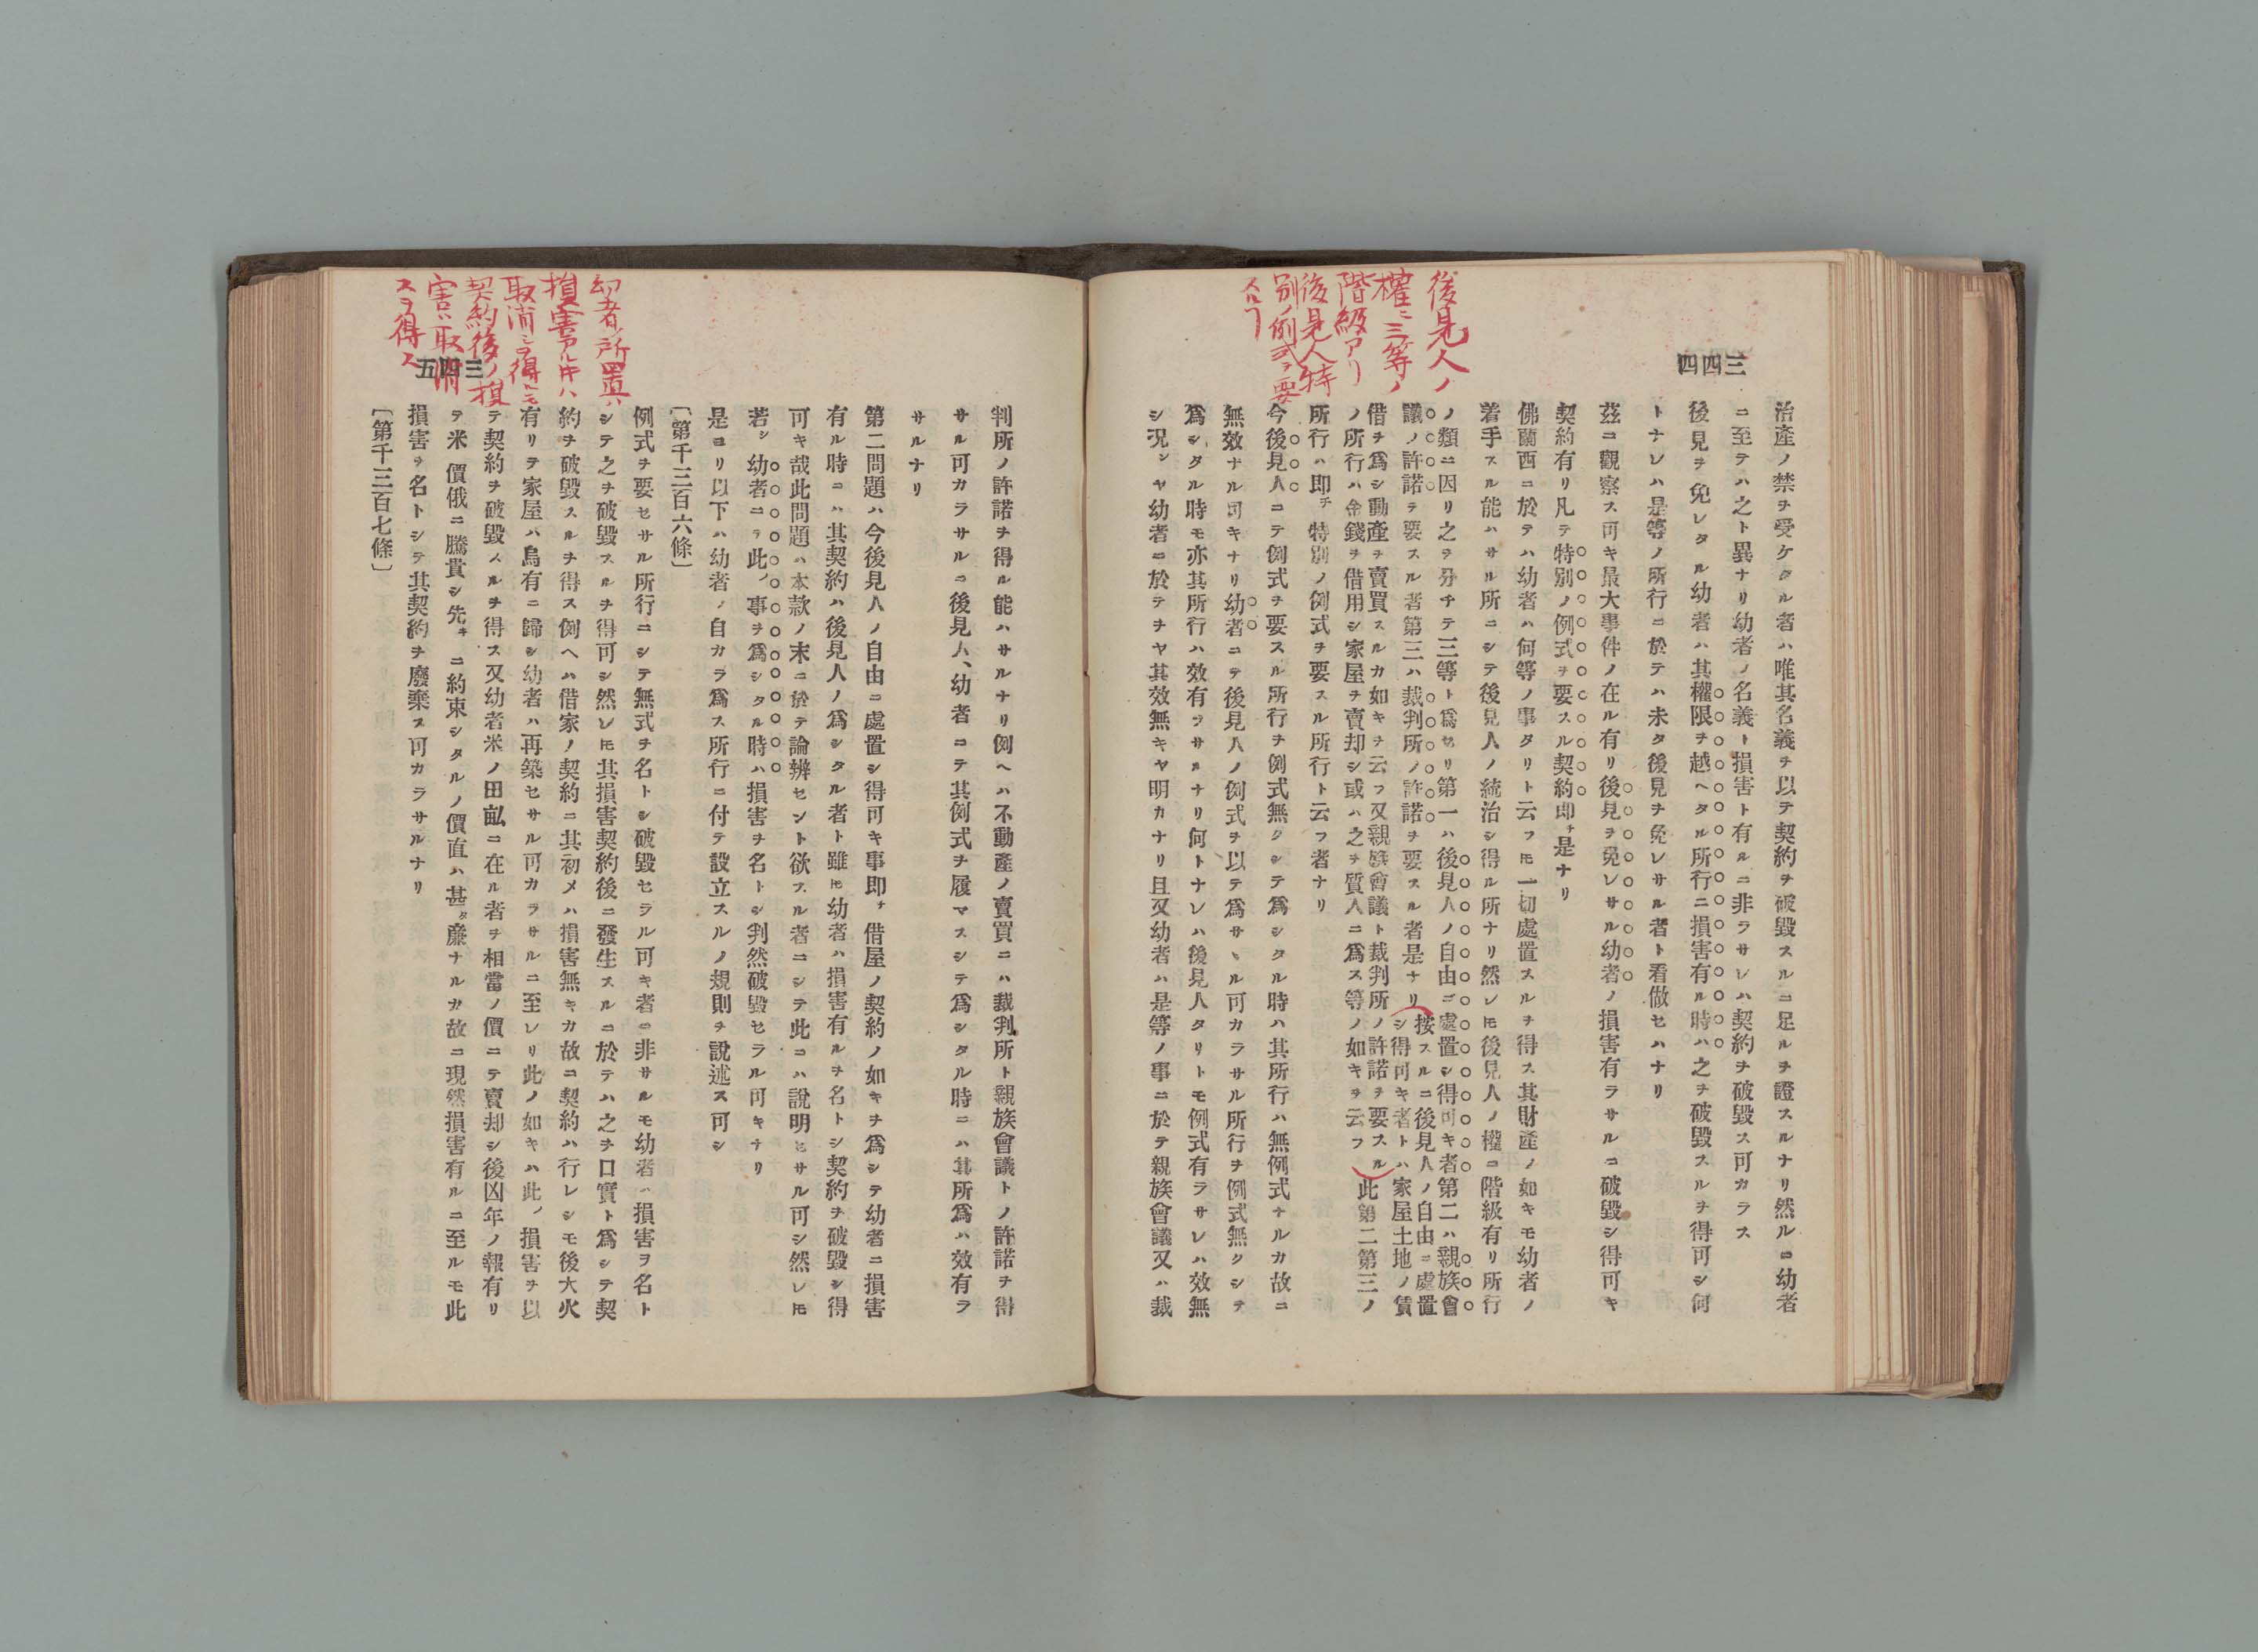 後見人ノ
權ニ三等ノ
階級アリ
後見人特
別ノ例式ヲ要
三四四
治產ノ禁ヲ受ケタル者ハ唯其名義ヲ以テ契約ヲ破毀スルニ足ルヲ證スルナリ然ルニ幼者
ニ至テハ之ト異ナリ幼者ノ名義ト損害ト有ルニ非ラサレハ契約ヲ破毀ス可カラス
後見ヲ免レタル幼者ハ其權限ヲ越ヘタル所行ニ損害有ル時ハ之ヲ破毀スルヲ得可シ何
トナレハ是等ノ所行ニ於テハ未タ後見ヲ免レサル者ト看傚セハナリ
茲ニ觀察ス可キ最大事件ノ在ル有リ後見ヲ免レサル幼者ノ損害有ラサルニ破毀シ得可キ
契約有リ凡テ特別ノ例式ヲ要スル契約即チ是ナリ
佛蘭西ニ於テハ幼者ハ何等ノ事タリト云フ𪜈一切處置スルヲ得ス其財產ノ如キモ幼者ノ
着手スル能ハサル所ニシテ後見人ノ統治シ得ル所ナリ然レ𪜈後見人ノ權ニ階級有リ所行
ノ類ニ因リ之ヲ分チテ三等ト爲セリ第一ハ後見人ノ自由ニ處置シ得可キ者第二ハ親族會
議ノ許諾ヲ要スル者第三ハ裁判所ノ許諾ヲ要スル者是ナリ
按スルニ後見人ノ自由ニ處置
シ得可キ者トハ家屋土地ノ賃
借ヲ爲シ動產ヲ賣買スルカ如キヲ云フ又親族會議ト裁判所ノ許諾ヲ要スル
ノ所行ハ金錢ヲ借用シ家屋ヲ賣却シ或ハ之ヲ質入ニ爲ス等ノ如キヲ云フ
此第二第三ノ
所行ハ即チ特別ノ例式ヲ要スル所行ト云フ者ナリ
今後見人ニテ例式ヲ要スル所行ヲ例式無クシテ爲シタル時ハ其所行ハ無例式ナルカ故ニ
無效ナル可キナリ幼者ニテ後見人ノ例式ヲ以テ爲サヽル可カラサル所行ヲ例式無クシテ
爲シタル時モ亦其所行ハ效有ラサルナリ何トナレハ後見人タリトモ例式有ラサレハ效無
シ况シヤ幼者ニ於テヲヤ其效無キヤ明カナリ且又幼者ハ是等ノ事ニ於テ親族會議又ハ裁
幼者ノ所置ハ
損害アル𪜈ハ
取消シヲ得ルモ
契約後ノ損
害ハ取消
スヲ得ス
三四五
判所ノ許諾ヲ得ル能ハサルナリ例ヘハ不動產ノ賣買ニハ裁判所ト親族會議トノ許諾ヲ得
サル可カラサルニ後見人、幼者ニテ其例式ヲ履マスシテ爲シタル時ニハ其所爲ハ效有ラ
サルナリ
第二問題ハ今後見人ノ自由ニ處置シ得可キ事即チ借屋ノ契約ノ如キヲ爲シテ幼者ニ損害
有ル時ニハ其契約ハ後見人ノ爲シタル者ト雖𪜈幼者ハ損害有ルヲ名トシ契約ヲ破毀シ得
可キ哉此問題ハ本款ノ末ニ於テ論辨セント欲スル者ニシテ此ニハ說明セサル可シ然レ𪜈
若シ幼者ニテ此ノ事ヲ爲シタル時ハ損害ヲ名トシ判然破毀セラル可キナリ
是ヨリ以下ハ幼者ノ自カラ爲ス所行ニ付テ設立スルノ規則ヲ說述ス可シ
〔第千三百六條〕
例式ヲ要セサル所行ニシテ無式ヲ名トシ破毀セラル可キ者ニ非サルモ幼者ハ損害ヲ名ト
シテ之ヲ破毀スルヲ得可シ然レ𪜈其損害契約後ニ發生スルニ於テハ之ヲ口實ト爲シテ契
約ヲ破毀スルヲ得ス例ヘハ借家ノ契約ニ其初メハ損害無キカ故ニ契約ハ行レシモ後大火
有リテ家屋ハ烏有ニ歸シ幼者ハ再築セサル可カラサルニ至レリ此ノ如キハ此ノ損害ヲ以
テ契約ヲ破毀スルヲ得ス又幼者米ノ田畝ニ在ル者ヲ相當ノ價ニテ賣却シ後凶年ノ報有リ
テ米價俄ニ騰貴シ先キニ約束シタルノ價直ハ甚タ廉ナルカ故ニ現然損害有ルニ至ルモ此
損害ヲ名トシテ其契約ヲ廢棄ス可カラサルナリ
〔第千三百七條〕